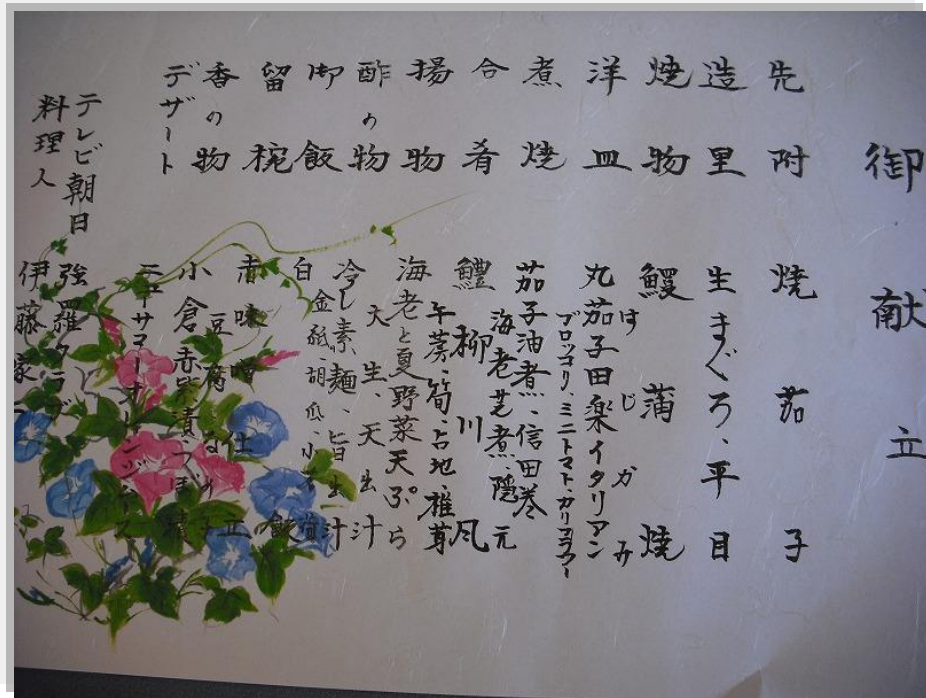 御献立
先附 焼茄子
造里 生まぐろ、平目
焼物 鰻蒲焼
はじかみ
洋皿 丸茄子田楽イタリアン
ブロッコリ、ミニトマト、カリフラワー
煮焼 茄子油煮、信田巻
海老芝煮、隠元
合肴 鱧柳川風
午蒡、筍、占地、椎茸
揚物 海老と夏野菜天ぷら
天生、天出汁
酢の物 冷し素麺、旨出汁
金糸、胡瓜、小茗荷
御飯 白飯
留椀 赤味噌仕立
豆腐 子
香の物 小倉赤紫漬、つぼ漬
デザート ニューサマーオレンジ
テレビ朝日 強羅クラブ
料理人 伊藤家